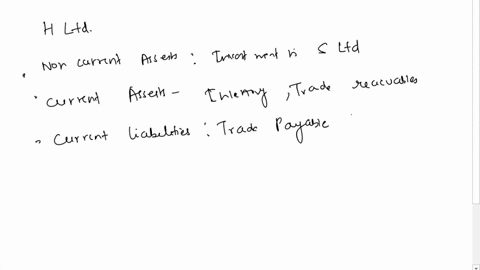 H Ltd.
Non current Assets : Investment in S Ltd
Current Assets - Inventory, Trade receivables
Current liabilities : Trade Payable